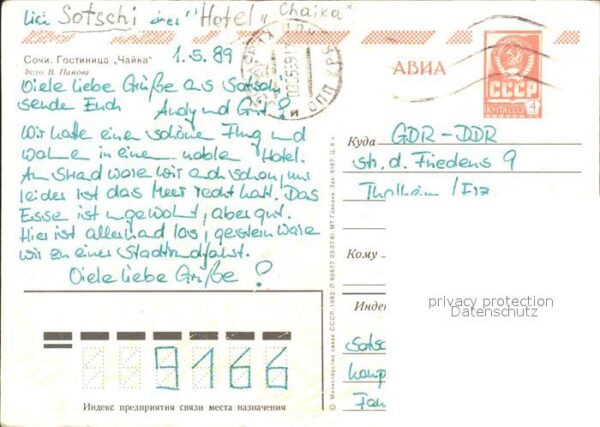 Sotschi Hotel „Chaika"
Сочи. Гостиница „Чайка"
Фото В. Панова
1.5.89
Viele liebe Grüße aus Sotschi
senden Euch Andy und
Wir hatten einen schönen Flug und
wohnen in einem noblen Hotel.
Am Strand waren wir auch schon, nur
leider ist das Meer recht kalt. Das
Essen ist ungewohnt, aber gut.
Hier ist allerhand los, gestern waren
wir zu einer Stadtrundfahrt.
Viele liebe Grüße
9166
Индекс предприятия связи места назначения
© Министерство связи СССР. 1982
АВИА
СССР
ПОЧТА
4
Куда GDR-DDR
str. d. Friedens 9
Thalheim / Erz
Кому
privacy protection
Datenschutz
Индек
Sotsc